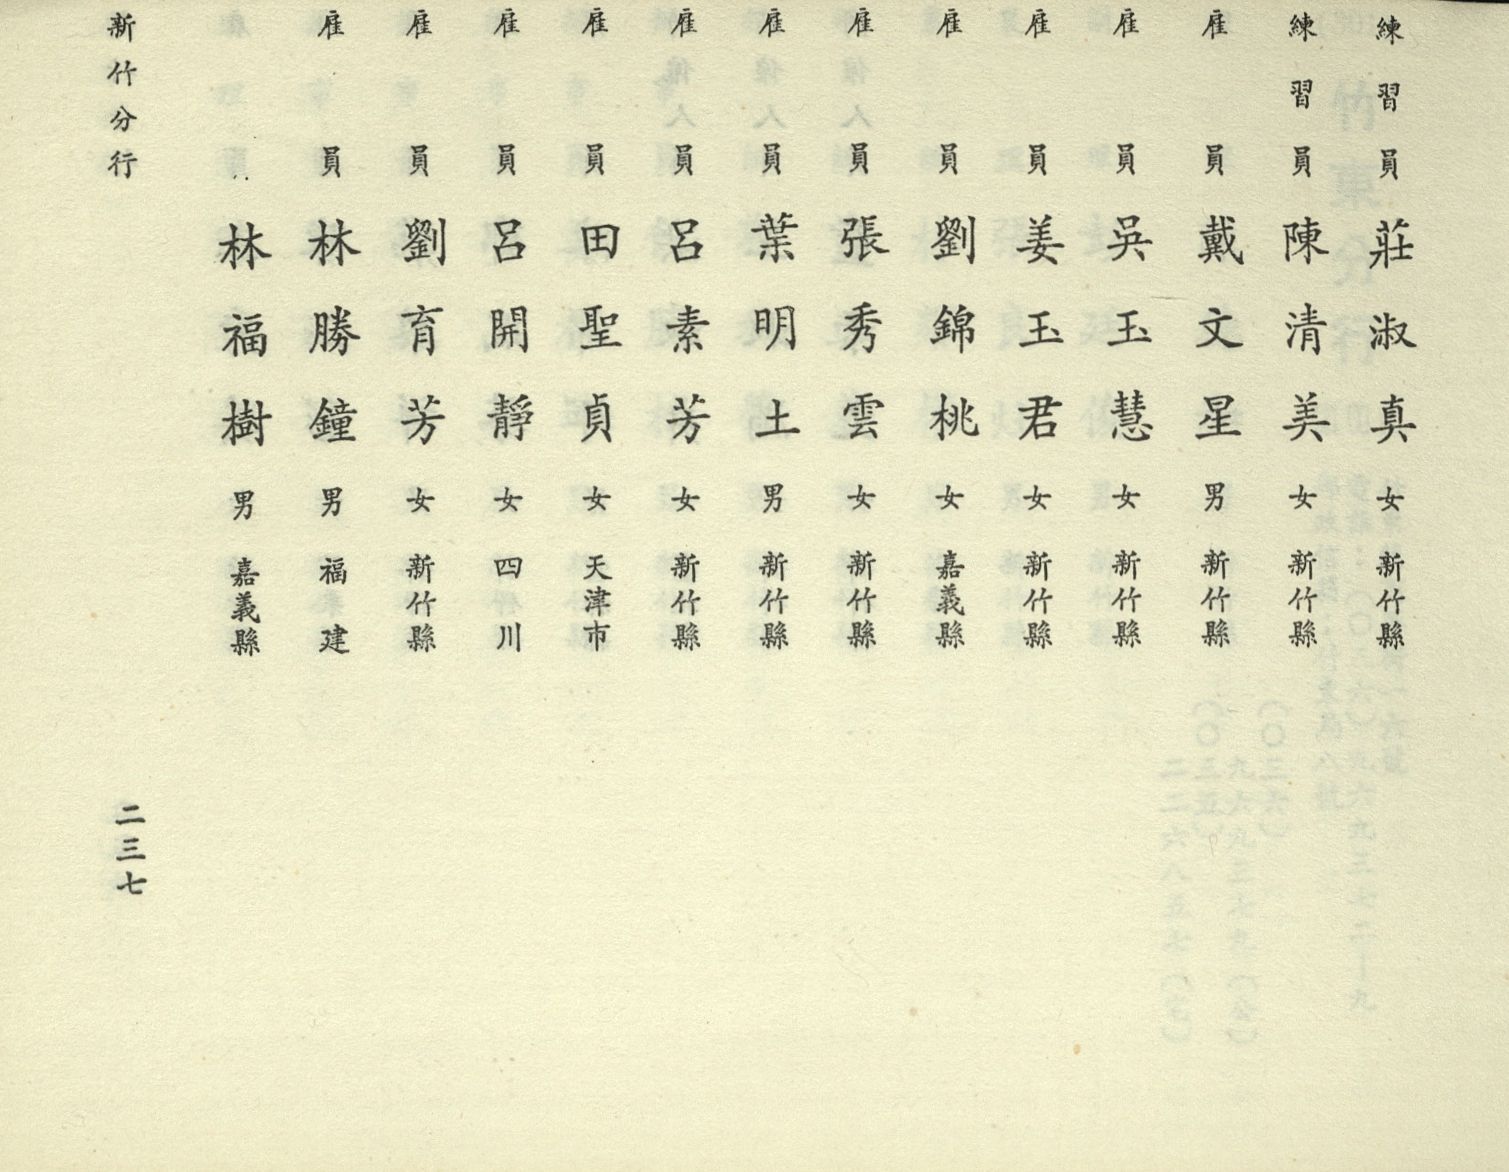 練習員 莊淑真 女 新竹縣
練習員 陳清美 女 新竹縣
雇員 戴文星 男 新竹縣
雇員 吳玉慧 女 新竹縣
雇員 姜玉君 女 新竹縣
雇員 劉錦桃 女 嘉義縣
雇員 張秀雲 女 新竹縣
雇員 葉明土 男 新竹縣
雇員 呂素芳 女 新竹縣
雇員 田聖貞 女 天津市
雇員 呂開靜 女 四川
雇員 劉育芳 女 新竹縣
雇員 林勝鐘 男 福建
林福樹 男 嘉義縣
新竹分行 二三七